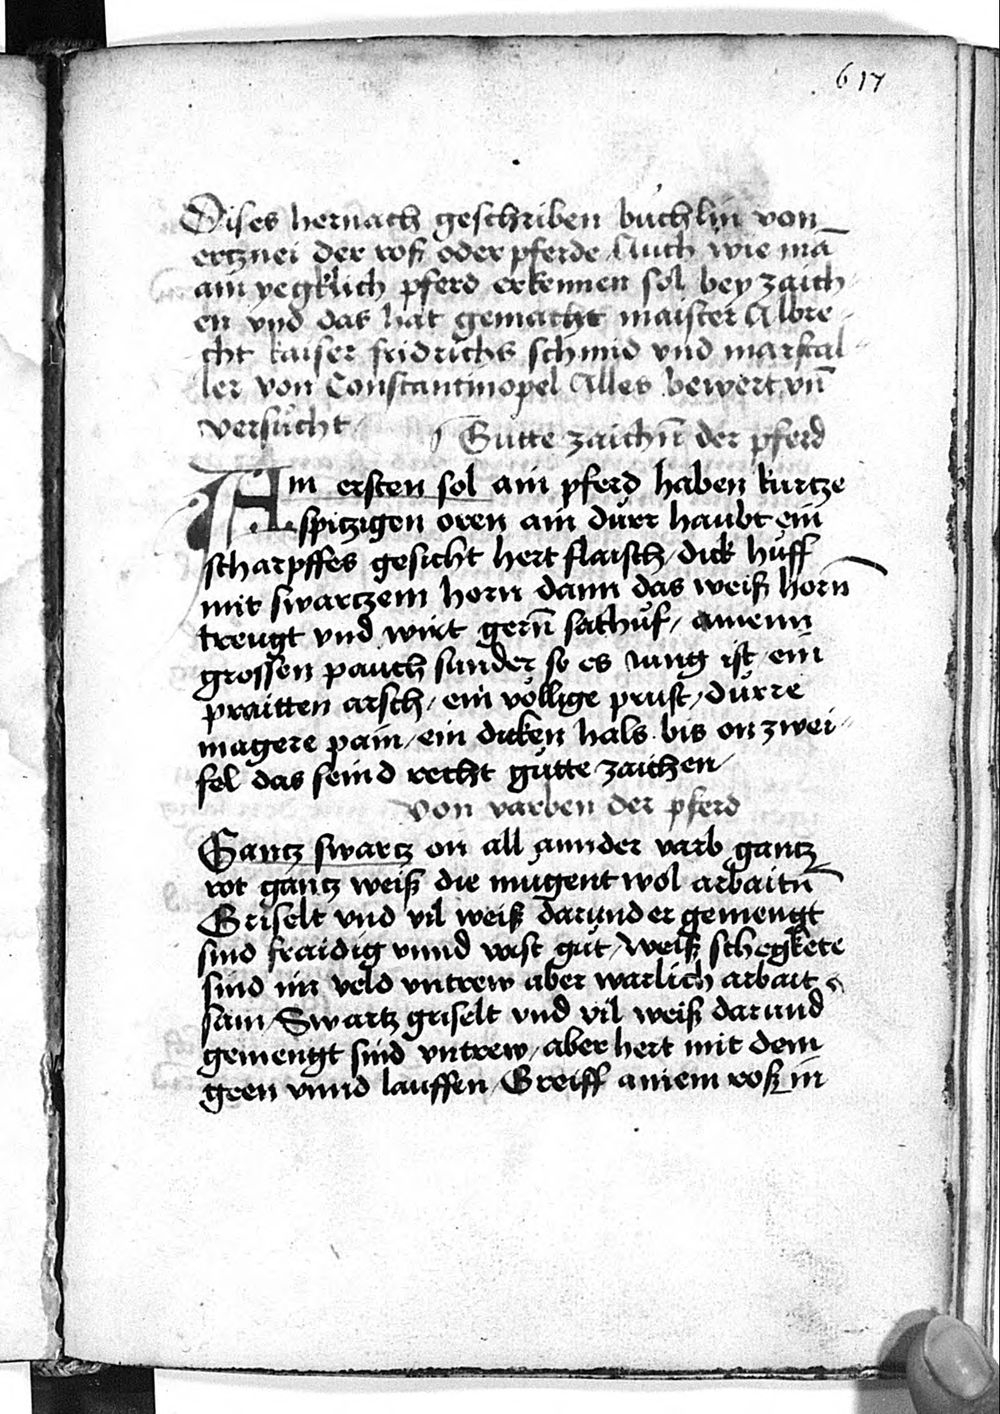 617
Dises hernach geschriben büchlin von
ertznei der roß oder pferde Auch wie mā
ain yegklich pferd erkennen sol bey zaich
en vnd das hat gemacht maister Albre
cht kaiser fridrichs schmid vnd marstal
ler von Constantinopel Alles bewert vn̄
versücht
Gutte zaichn̄ der pferd
Am ersten sol ain pferd haben kurtze
spitzigen oren ain dürr haubt ein
scharpffes gesicht hert flaisch / dick hüff
mit swartzem horn dann das weiß horn̄
treugt vnd wirt gern̄ sathüf / ainenn
grossen pauch sunder so es iung ist / ein
praitten arsch / ein völlige prust / dürre
magere pain / ein dicken hals bis on zwei
fel das seind recht gütte zaichen
von varben der pferd
Gantz swartz on all annder varb gantz
rot gantz weiß die mugent wol arbaitn̄
Griselt vnd vil weiß darunder gemengt
sind fraidig vnnd vast güt / weiß schegkete
sind im veld vntrew aber warlich arbait
sam / Swartz griselt vnd vil weiß darund
gemengt sind vntrew / aber hert mit dem
geen vnnd lauffen / Greiff ainem roß in